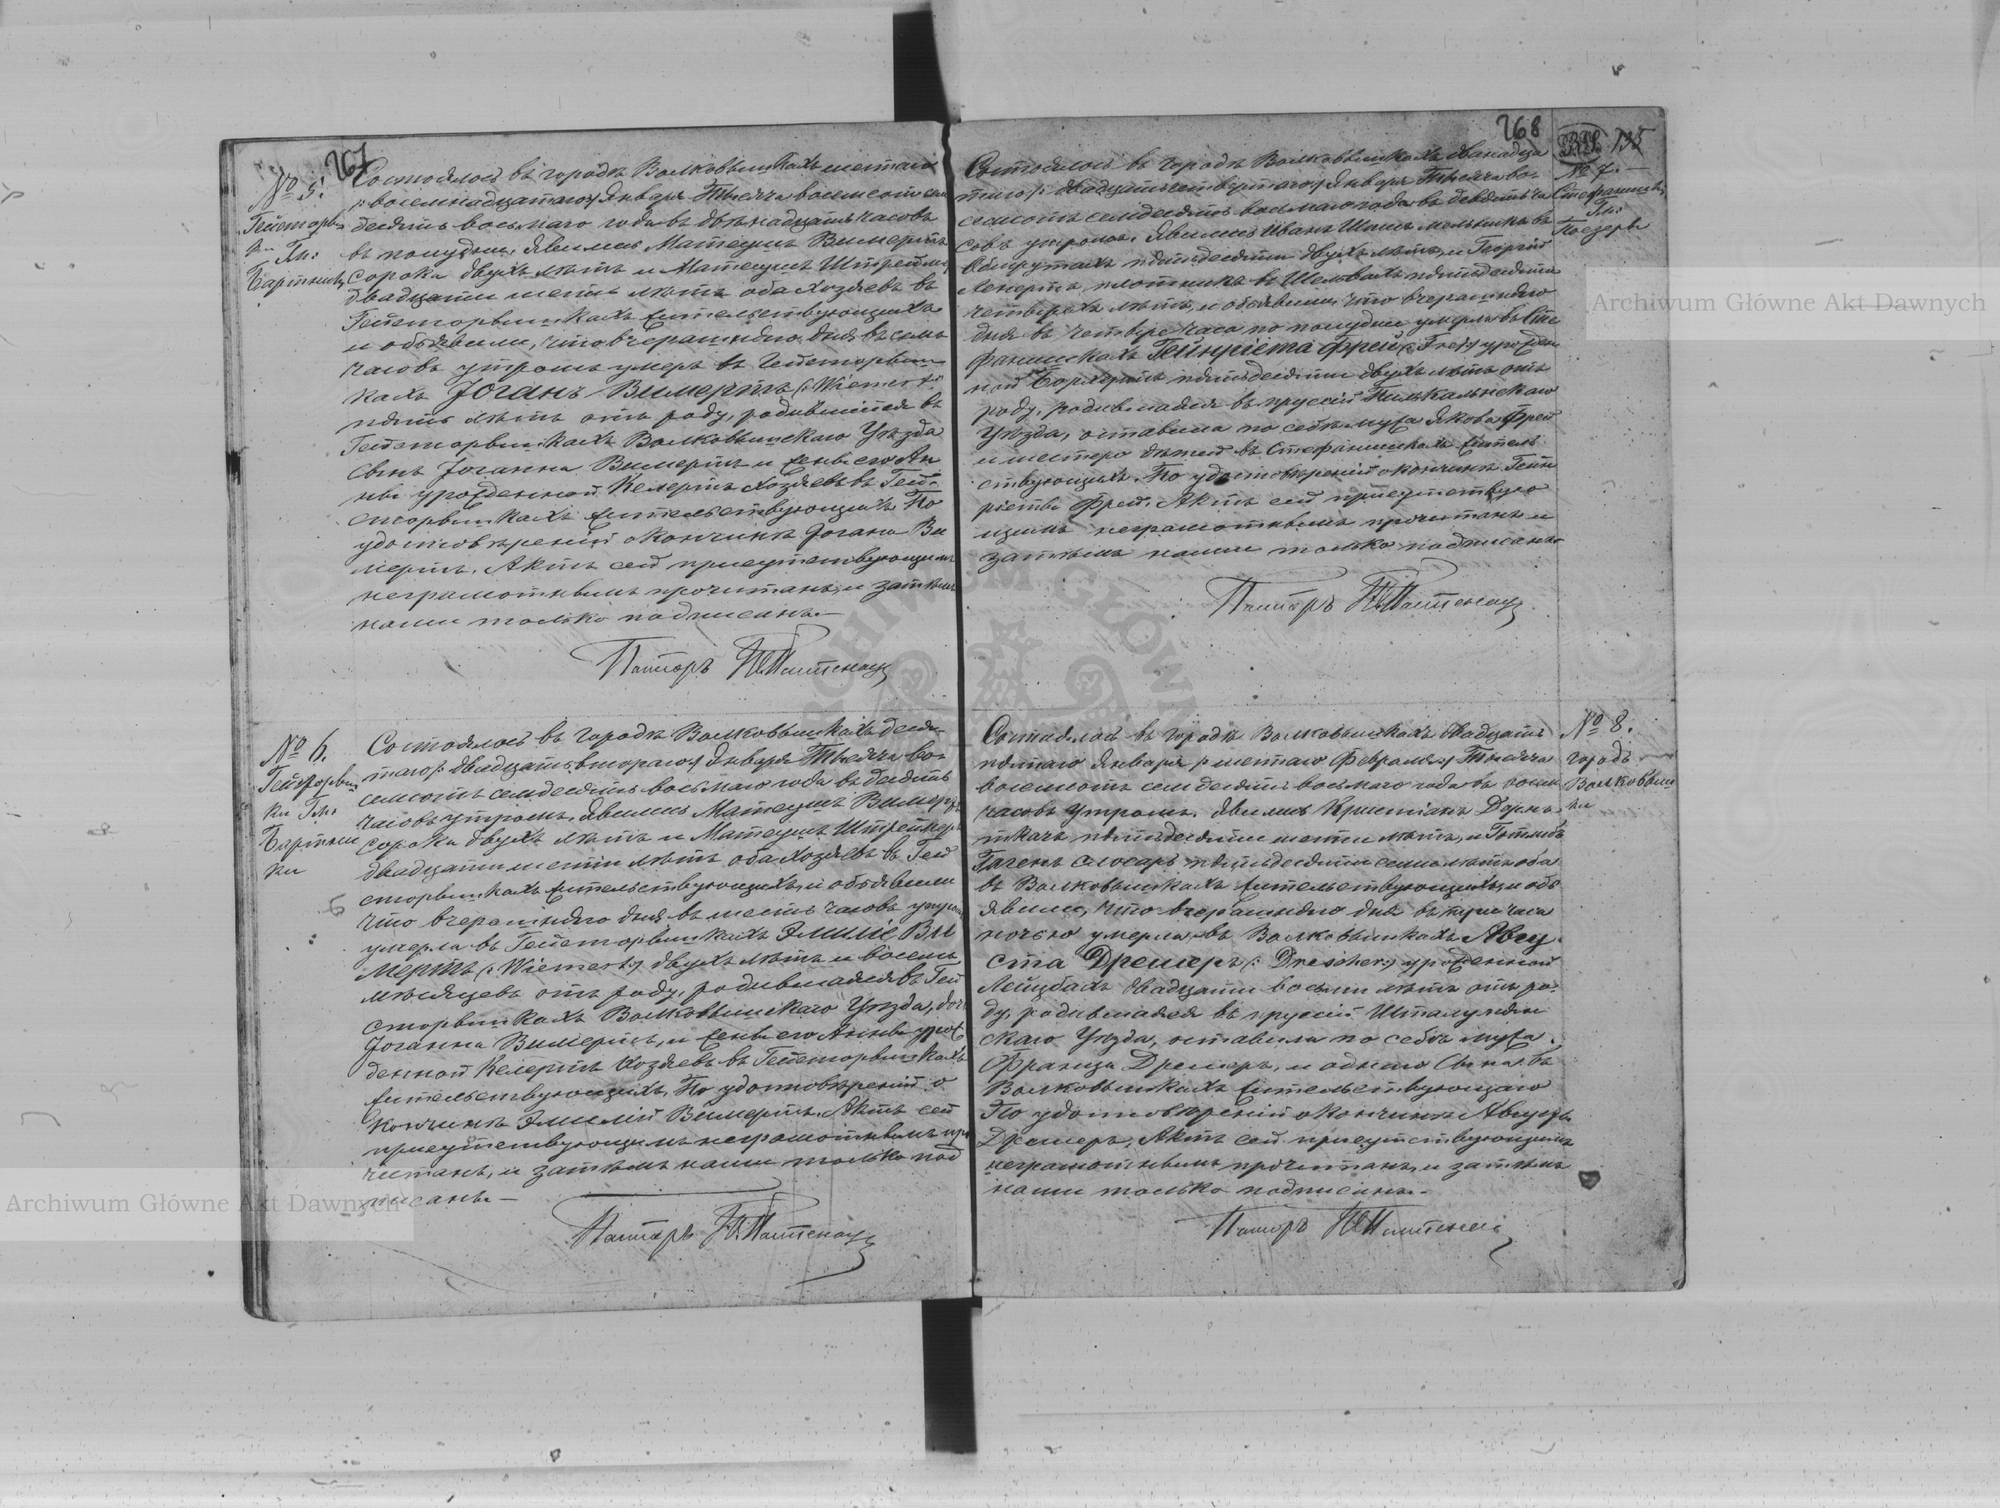 267
№ 5.
Гейсторвиш
ки Гм:
Бартники
Состоялось въ городѣ Волковышкахъ шестаго
(: восемнадцатаго:) Января Тысяча восемсотъ сем
десятъ восьмаго года въ двѣнадцать часовъ
въ полудни, Явились Матеушъ Вимертъ
сорока двухъ лѣтъ и Матеушъ Штреймеръ
двадцати шести лѣтъ оба Хозяевъ въ
Гейсторвишкахъ жительствующихъ
и объявили, что вчерашняго дня въ семь
часовъ утромъ умеръ въ Гейсторвиш
кахъ Іоганъ Вимертъ (: Wiemert:)
пять лѣтъ отъ роду, родившійся въ
Гейсторвишкахъ Волковышскаго Уѣзда
Сынъ Іоганна Вимертъ и жены его Ан
ны урожденной Келертъ Хозяевъ въ Гей
сторвишкахъ жительствующихъ. По
удостовѣреніи о кончинѣ Іогана Ви
мертъ, Актъ сей присутствующимъ
неграмотнымъ прочитанъ, и затѣмъ
нами только подписанъ.—
Пасторъ
№ 6.
Гейсторвиш
ки Гм:
Бартни
ки
Состоялось въ городѣ Волковышкахъ деся
таго (: двадцать втораго:) Января Тысяча во
семсотъ семдесятъ восьмаго года въ десять
часовъ утромъ, Явились Матеушъ Вимертъ
сорока двухъ лѣтъ и Матеушъ Штреймеръ
двадцати шести лѣтъ оба Хозяевъ въ Гей
сторвишкахъ жительствующихъ, и объявили
что вчерашняго дня въ шесть часовъ утромъ
умерла въ Гейсторвишкахъ Эмиліе Ви
мертъ (: Wiemert:) двухъ лѣтъ и восемь
мѣсяцевъ отъ роду, родившаяся въ Гей
сторвишкахъ Волковышскаго Уѣзда, дочь
Іоганна Вимертъ, и жены его Анны урож
денной Келертъ Хозяевъ въ Гейсторвишкахъ
жительствующихъ, По удостовѣреніи о
кончинѣ Эмиліи Вимертъ. Актъ сей
присутствующимъ неграмотнымъ про
читанъ, и затѣмъ нами только под
писанъ.—
Пасторъ
268
135
№ 7.
Стефанишки
Гм:
Состоялось въ городѣ Волковышкахъ двѣнадца
таго (: двадцать четвертаго:) Января Тысяча во
семсотъ семдесятъ восьмаго года въ девять ча
совъ утромъ. Явились Иванъ мельникъ въ
пятьдесяти двухъ лѣтъ, и Георгій
плотникъ въ пятьдесяти
четырехъ лѣтъ, и объявили, что вчерашняго
дня въ четыре часа по полудни умерла въ Сте
фанишкахъ Гейнріета Фрей (: Frei:) урожден
ной пятьдесяти двухъ лѣтъ отъ
роду, родившаяся въ пруссіи Пилькальнскаго
Уѣзда, оставила по себѣ мужа Якова Фрей
и шестеро дѣтей въ Стефанишкахъ житель
ствующихъ. По удостовѣреніи о кончинѣ Гейн
ріеты Фрей, Актъ сей присутствую
щимъ неграмотнымъ прочитанъ и
затѣмъ нами только подписанъ.
Пасторъ
№ 8.
городъ
Волковыш
ки
Состоялось въ городѣ Волковышкахъ двадцать
пятаго Января (: шестаго Февраля:) Тысяча
восемсотъ семдесятъ восьмаго года въ восемь
часовъ утромъ. Явились Христіанъ Дорнъ
ткачъ пятьдесяти шести лѣтъ, и Готлибъ
Гагенъ слесарь пятьдесяти семи лѣтъ оба
въ Волковышкахъ жительствующихъ, и объ
явили, что вчерашняго дня въ три часа
ночью умерла въ Волковышкахъ Авгу
ста Дрешеръ (: Drescher:) урожденной
Лейцбахъ двадцати восьми лѣтъ отъ ро
ду, родившаяся въ пруссіи Шталупян
скаго Уѣзда, оставила по себѣ мужа
Франца Дрешеръ, и одного Сына въ
Волковышкахъ жительствующаго
По удостовѣреніи о кончинѣ Августы
Дрешеръ, Актъ сей присутствующимъ
неграмотнымъ прочитанъ, и затѣмъ
нами только подписанъ.—
Пасторъ
Archiwum Główne Akt Dawnych
Archiwum Główne Akt Dawnych